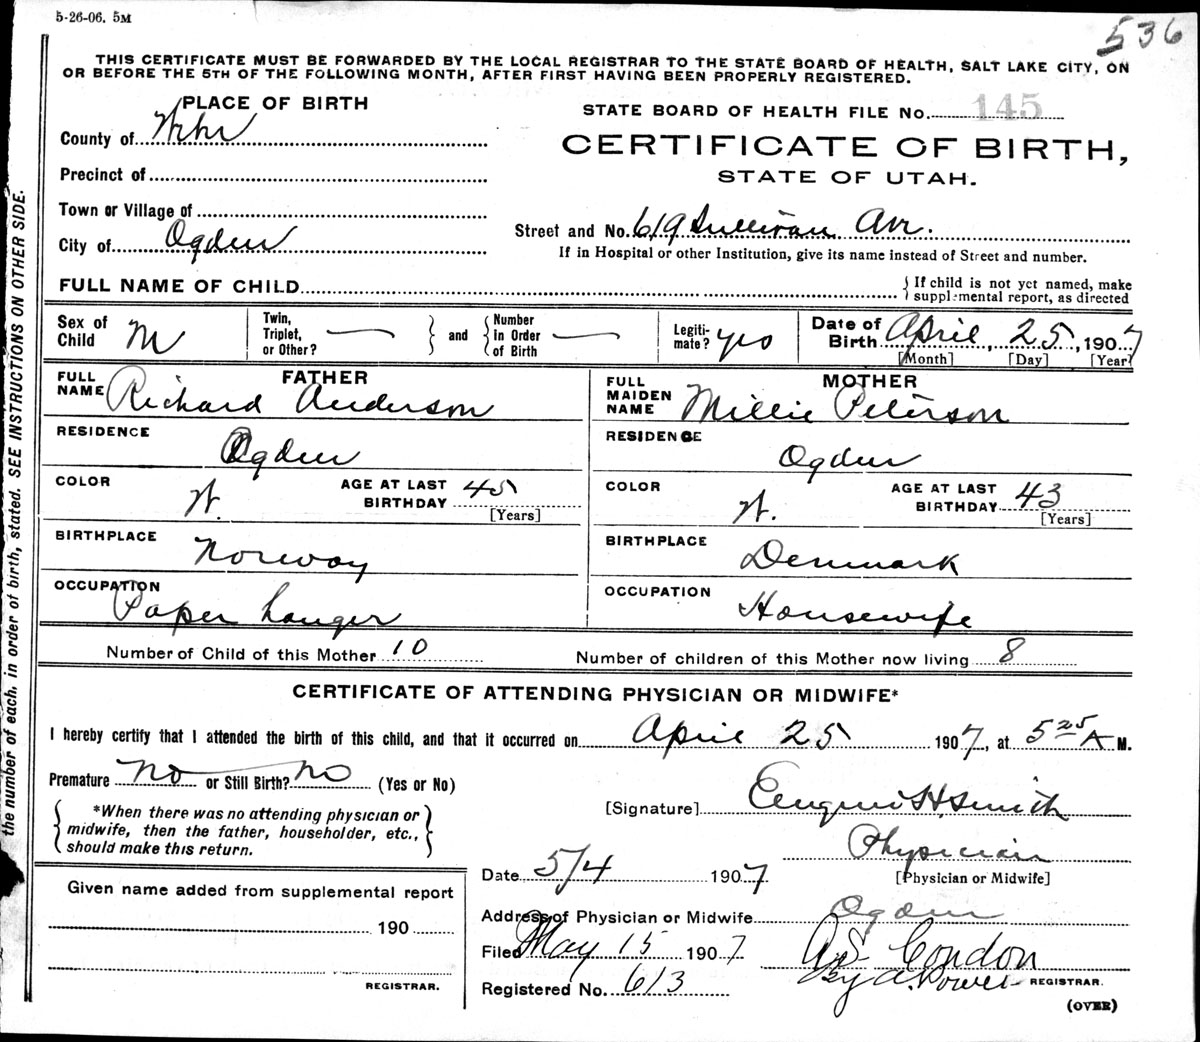 5-26-06. 5M
536
THIS CERTIFICATE MUST BE FORWARDED BY THE LOCAL REGISTRAR TO THE STATE BOARD OF HEALTH, SALT LAKE CITY, ON
OR BEFORE THE 5TH OF THE FOLLOWING MONTH, AFTER FIRST HAVING BEEN PROPERLY REGISTERED.
PLACE OF BIRTH
STATE BOARD OF HEALTH FILE No. 145
County of
CERTIFICATE OF BIRTH,
Precinct of
STATE OF UTAH.
Town or Village of
City of Ogden
Street and No. 619 Sullivan Ave.
If in Hospital or other Institution, give its name instead of Street and number.
FULL NAME OF CHILD
{ If child is not yet named, make
supplemental report, as directed
Sex of Child M
Twin, Triplet, or Other? —
} and { Number in Order of Birth —
Legiti-mate? yes
Date of Birth April, 25, 1907
[Month] [Day] [Year]
FATHER
FULL NAME Richard Anderson
MOTHER
FULL MAIDEN NAME Millie Peterson
RESIDENCE Ogden
RESIDENCE Ogden
COLOR W.
AGE AT LAST BIRTHDAY 45 [Years]
COLOR W.
AGE AT LAST BIRTHDAY 43 [Years]
BIRTHPLACE Norway
BIRTHPLACE Denmark
OCCUPATION Paper hanger
OCCUPATION Housewife
Number of Child of this Mother 10
Number of children of this Mother now living 8
CERTIFICATE OF ATTENDING PHYSICIAN OR MIDWIFE*
I hereby certify that I attended the birth of this child, and that it occurred on April 25 1907, at 5 25 A M.
Premature No or Still Birth? No (Yes or No)
{ *When there was no attending physician or
midwife, then the father, householder, etc.,
should make this return. }
[Signature] H. Smith
Physician
[Physician or Midwife]
Date 5/4 1907
Given name added from supplemental report
190
REGISTRAR.
Address of Physician or Midwife Ogden
Filed May 15 1907
A. S. Condon
By A.
REGISTRAR.
Registered No. 613
(OVER)
the number of each, in order of birth, stated. SEE INSTRUCTIONS ON OTHER SIDE.